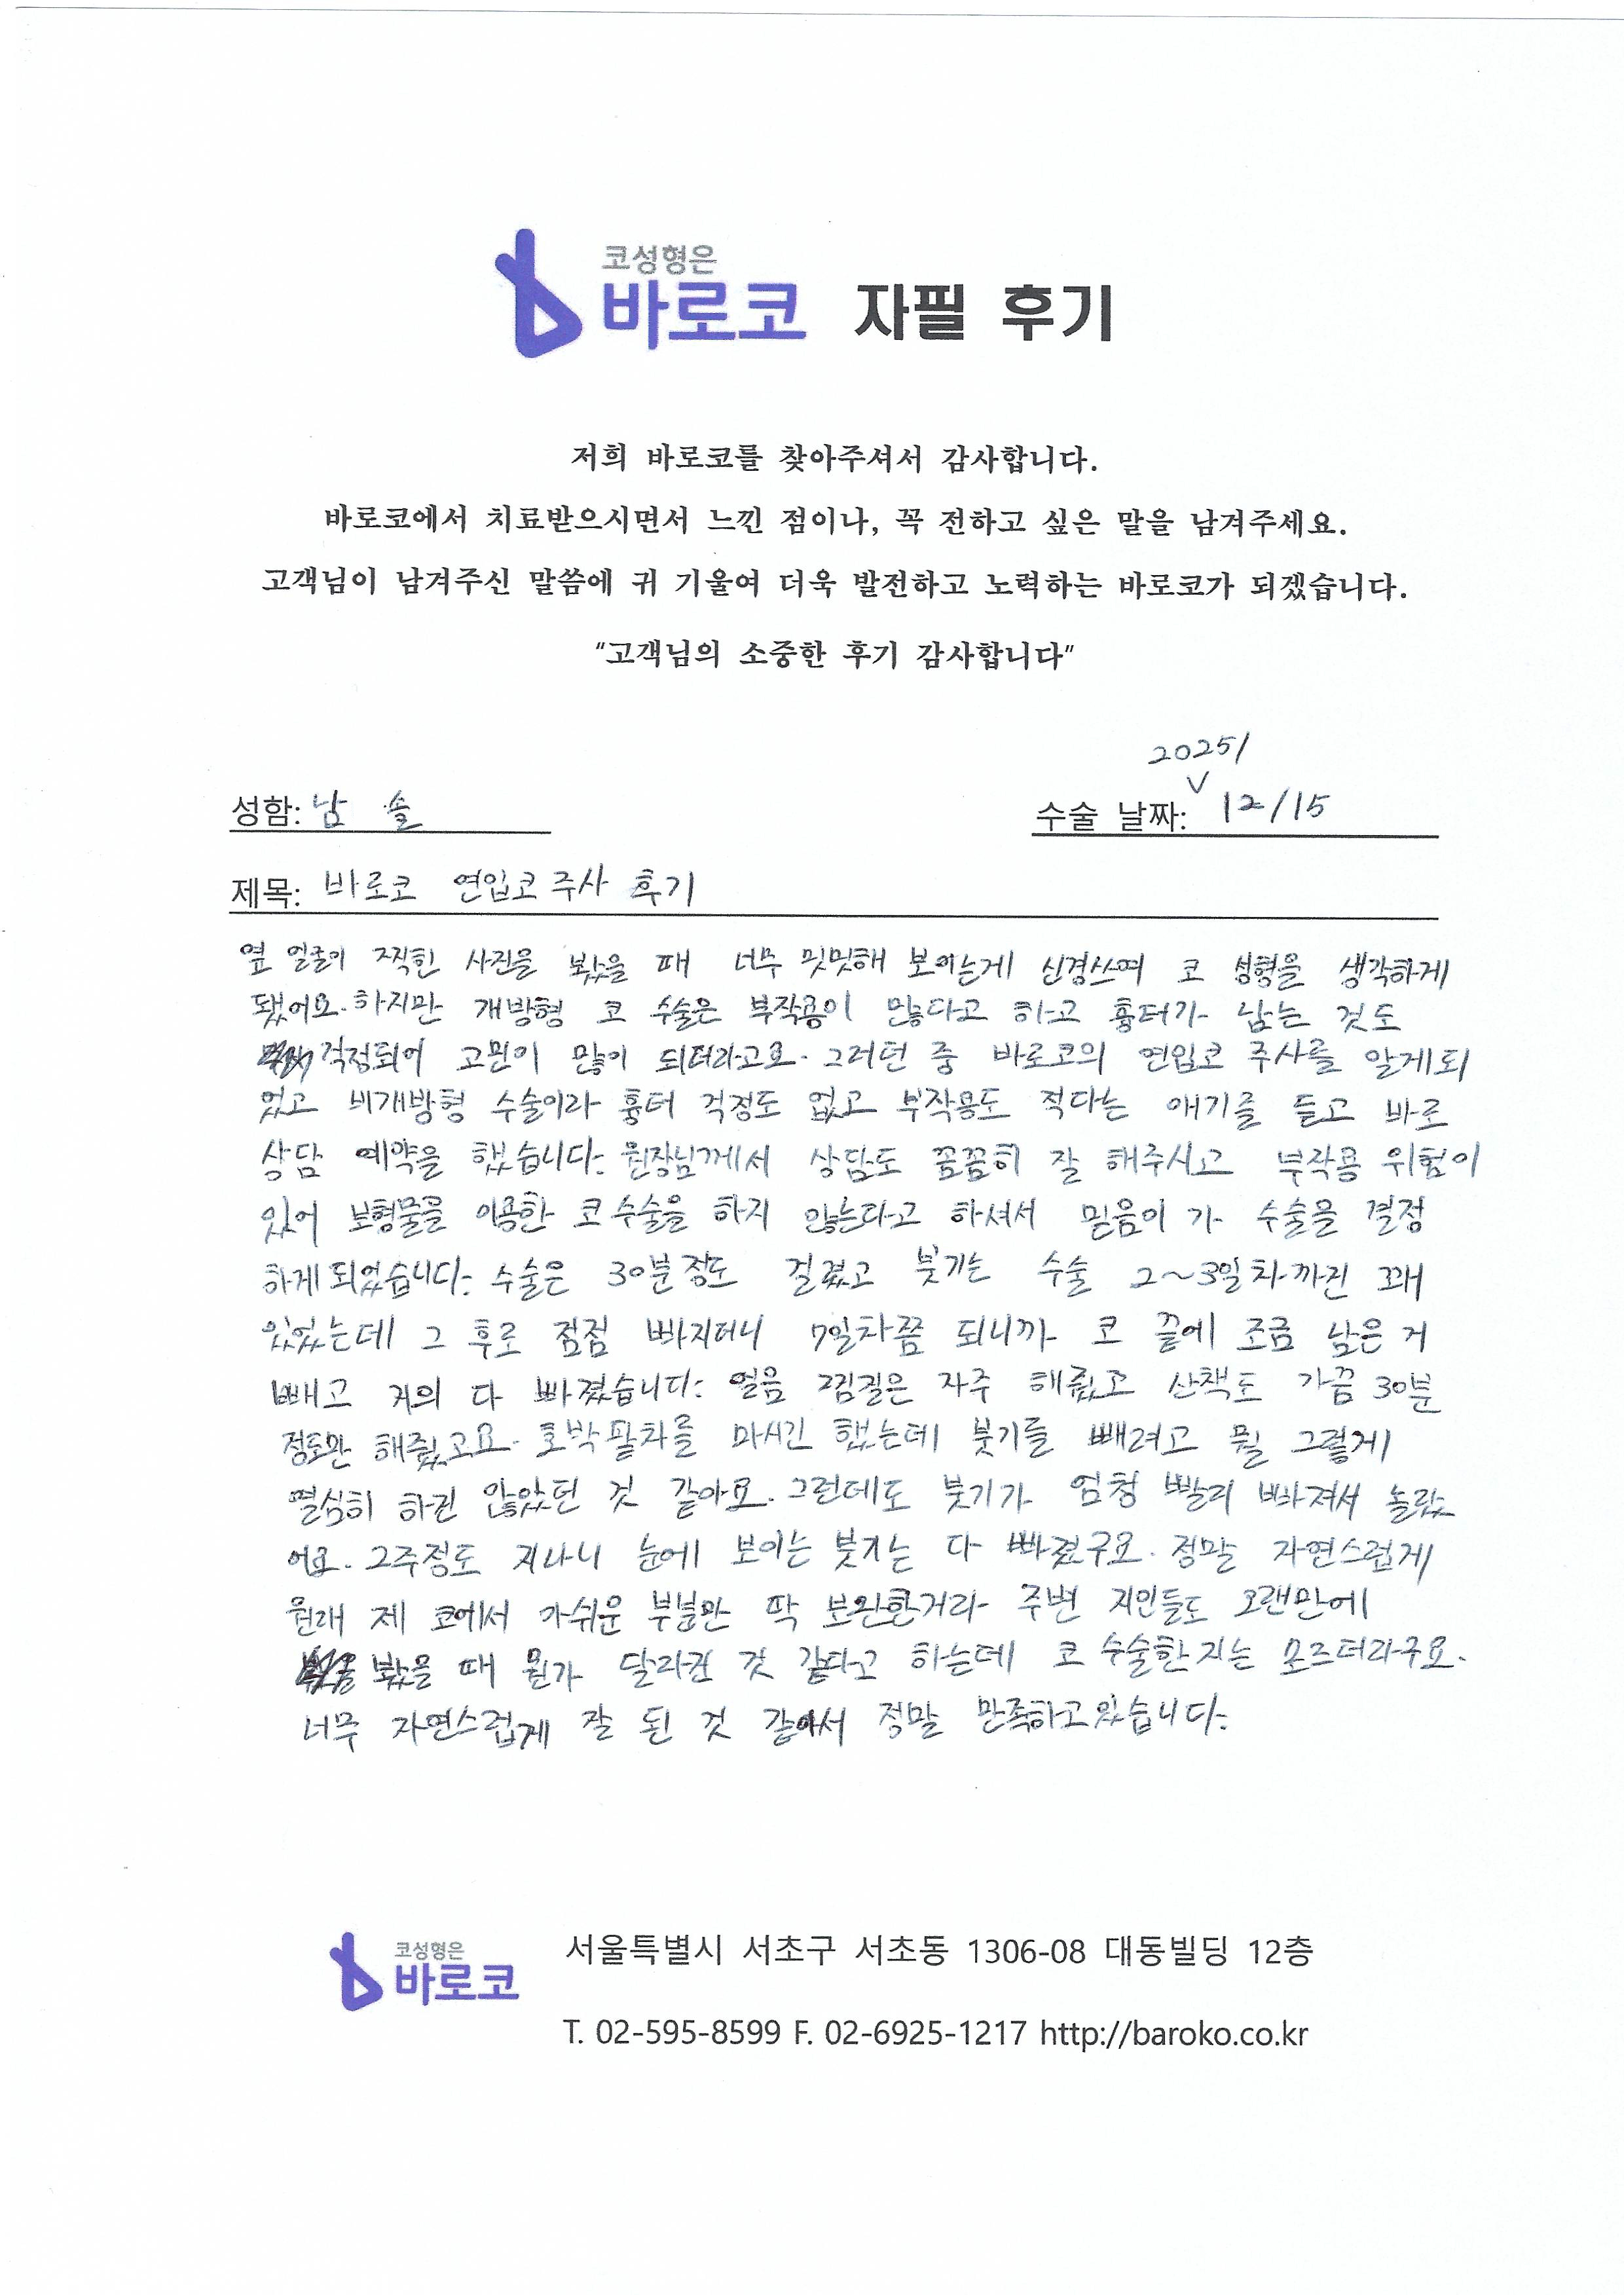 코성형은
바로코 자필 후기
저희 바로코를 찾아주셔서 감사합니다.
바로코에서 치료받으시면서 느낀 점이나, 꼭 전하고 싶은 말을 남겨주세요.
고객님이 남겨주신 말씀에 귀 기울여 더욱 발전하고 노력하는 바로코가 되겠습니다.
"고객님의 소중한 후기 감사합니다"
2025/
성함: 남 솔 수술 날짜: 12/15
제목: 바로코 연입코 주사 후기
옆 얼굴이 찍힌 사진을 봤을 때 너무 밋밋해 보이는게 신경쓰여 코 성형을 생각하게
됐어요. 하지만 개방형 코 수술은 부작용이 많다고 하고 흉터가 남는 것도
걱정되어 고민이 많이 되더라고요. 그러던 중 바로코의 연입코 주사를 알게되
었고 비개방형 수술이라 흉터 걱정도 없고 부작용도 적다는 얘기를 듣고 바로
상담 예약을 했습니다. 원장님께서 상담도 꼼꼼히 잘 해주시고 부작용 위험이
있어 보형물을 이용한 코 수술을 하지 않는다고 하셔서 믿음이 가 수술을 결정
하게 되었습니다. 수술은 30분 정도 걸렸고 붓기는 수술 2~3일차까진 꽤
있었는데 그 후로 점점 빠지더니 7일차쯤 되니까 코 끝에 조금 남은 거
빼고 거의 다 빠졌습니다. 얼음 찜질은 자주 해줬고 산책도 가끔 30분
정도만 해줬고요. 호박팥차를 마시긴 했는데 붓기를 빼려고 뭘 그렇게
열심히 하진 않았던 것 같아요. 그런데도 붓기가 엄청 빨리 빠져서 놀랐
어요. 2주정도 지나니 눈에 보이는 붓기는 다 빠졌구요. 정말 자연스럽게
원래 제 코에서 아쉬운 부분만 딱 보완한거라 주변 지인들도 오랜만에
봤을 때 뭔가 달라진 것 같다고 하는데 코 수술한지는 모르더라구요.
너무 자연스럽게 잘 된 것 같아서 정말 만족하고있습니다.
코성형은
바로코
서울특별시 서초구 서초동 1306-08 대동빌딩 12층
T. 02-595-8599 F. 02-6925-1217 http://baroko.co.kr